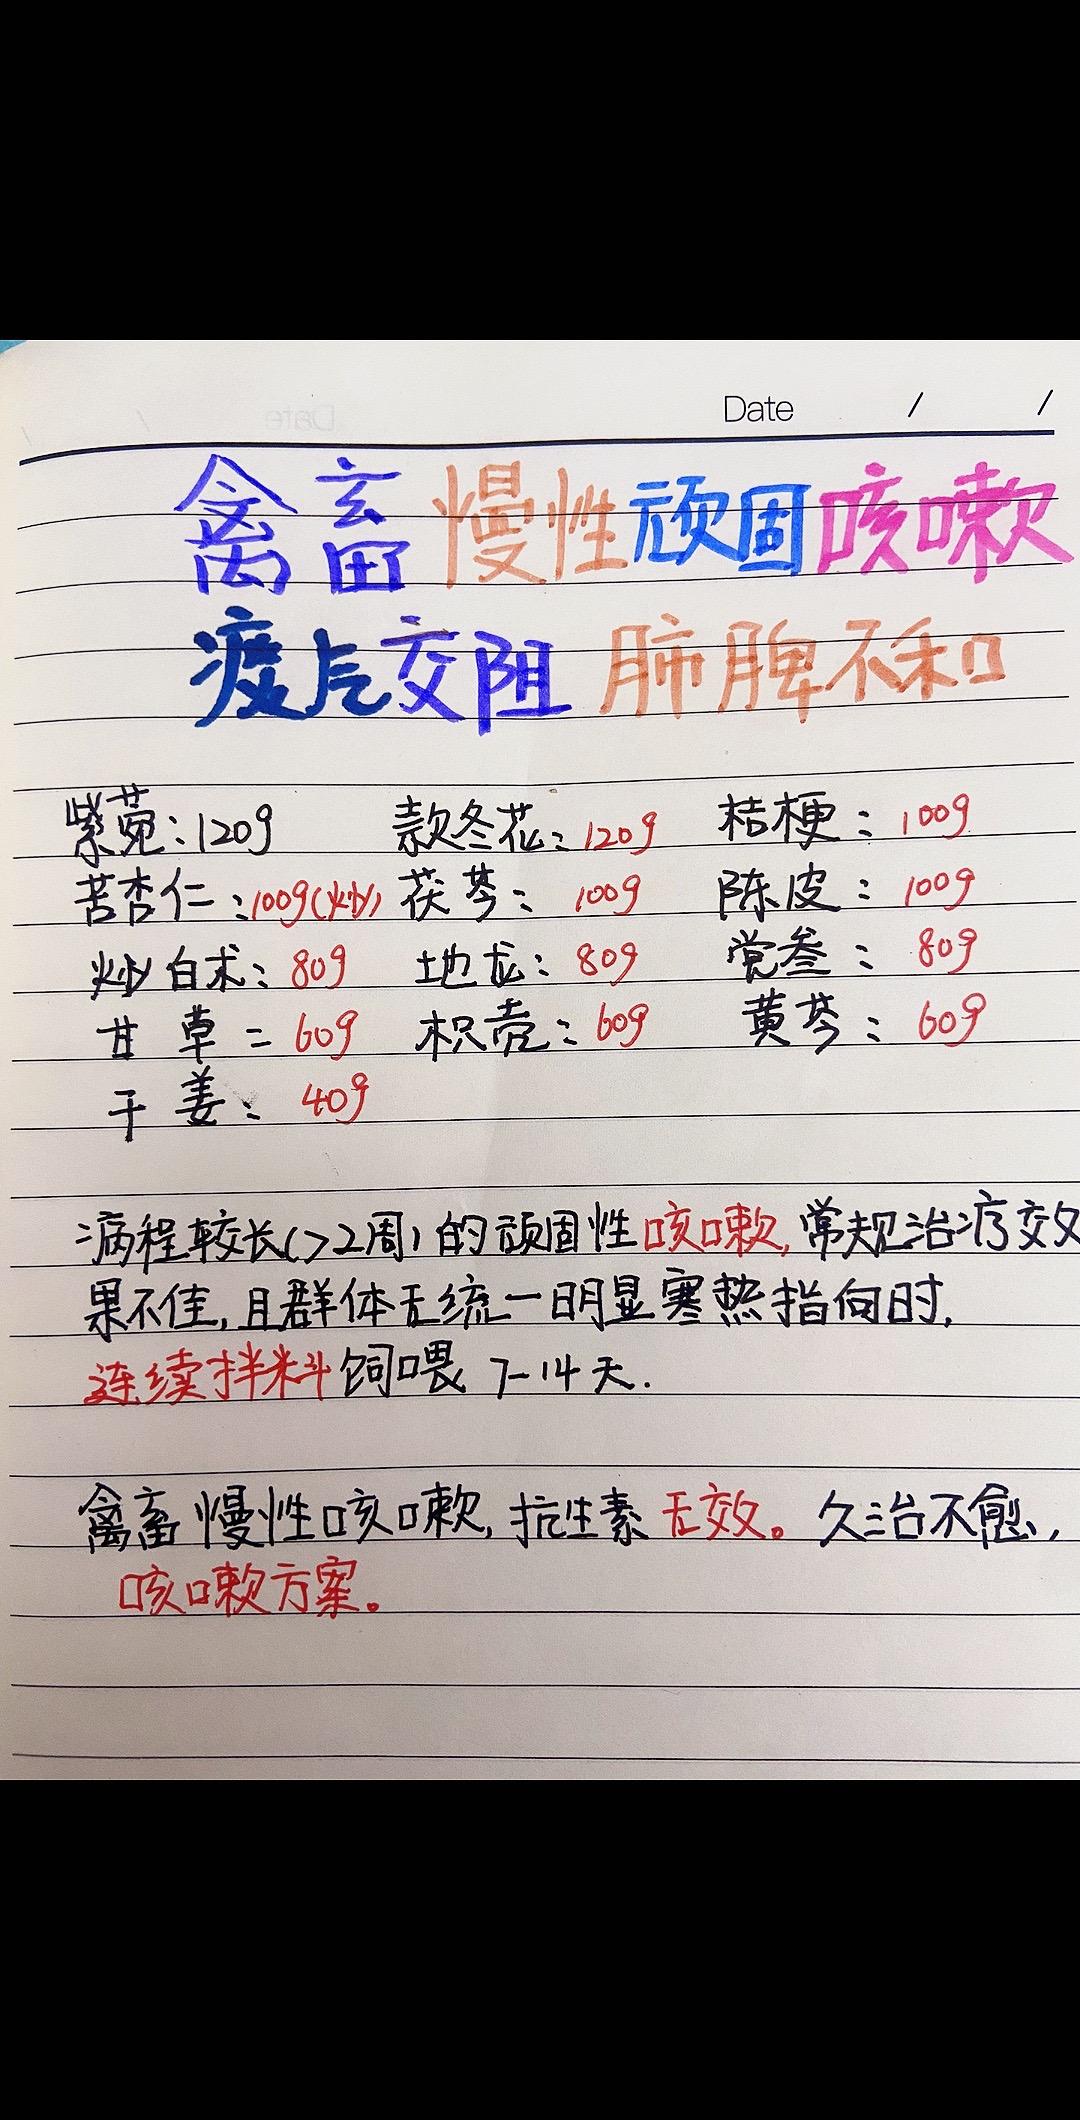 Date / /
禽畜慢性顽固咳嗽
痰气交阻 肺脾不和
紫菀:120g 款冬花:120g 桔梗:100g
苦杏仁:100g(炒) 茯苓:100g 陈皮:100g
炒白术:80g 地龙:80g 党叁:80g
甘草=60g 枳壳:60g 黄芩:60g
干姜:40g
病程较长(>2周)的顽固性咳嗽,常规治疗效
果不佳,且群体无统一明显寒热指向时,
连续拌料饲喂 7-14天.
禽畜慢性咳嗽,抗生素无效。久治不愈,
咳嗽方案。